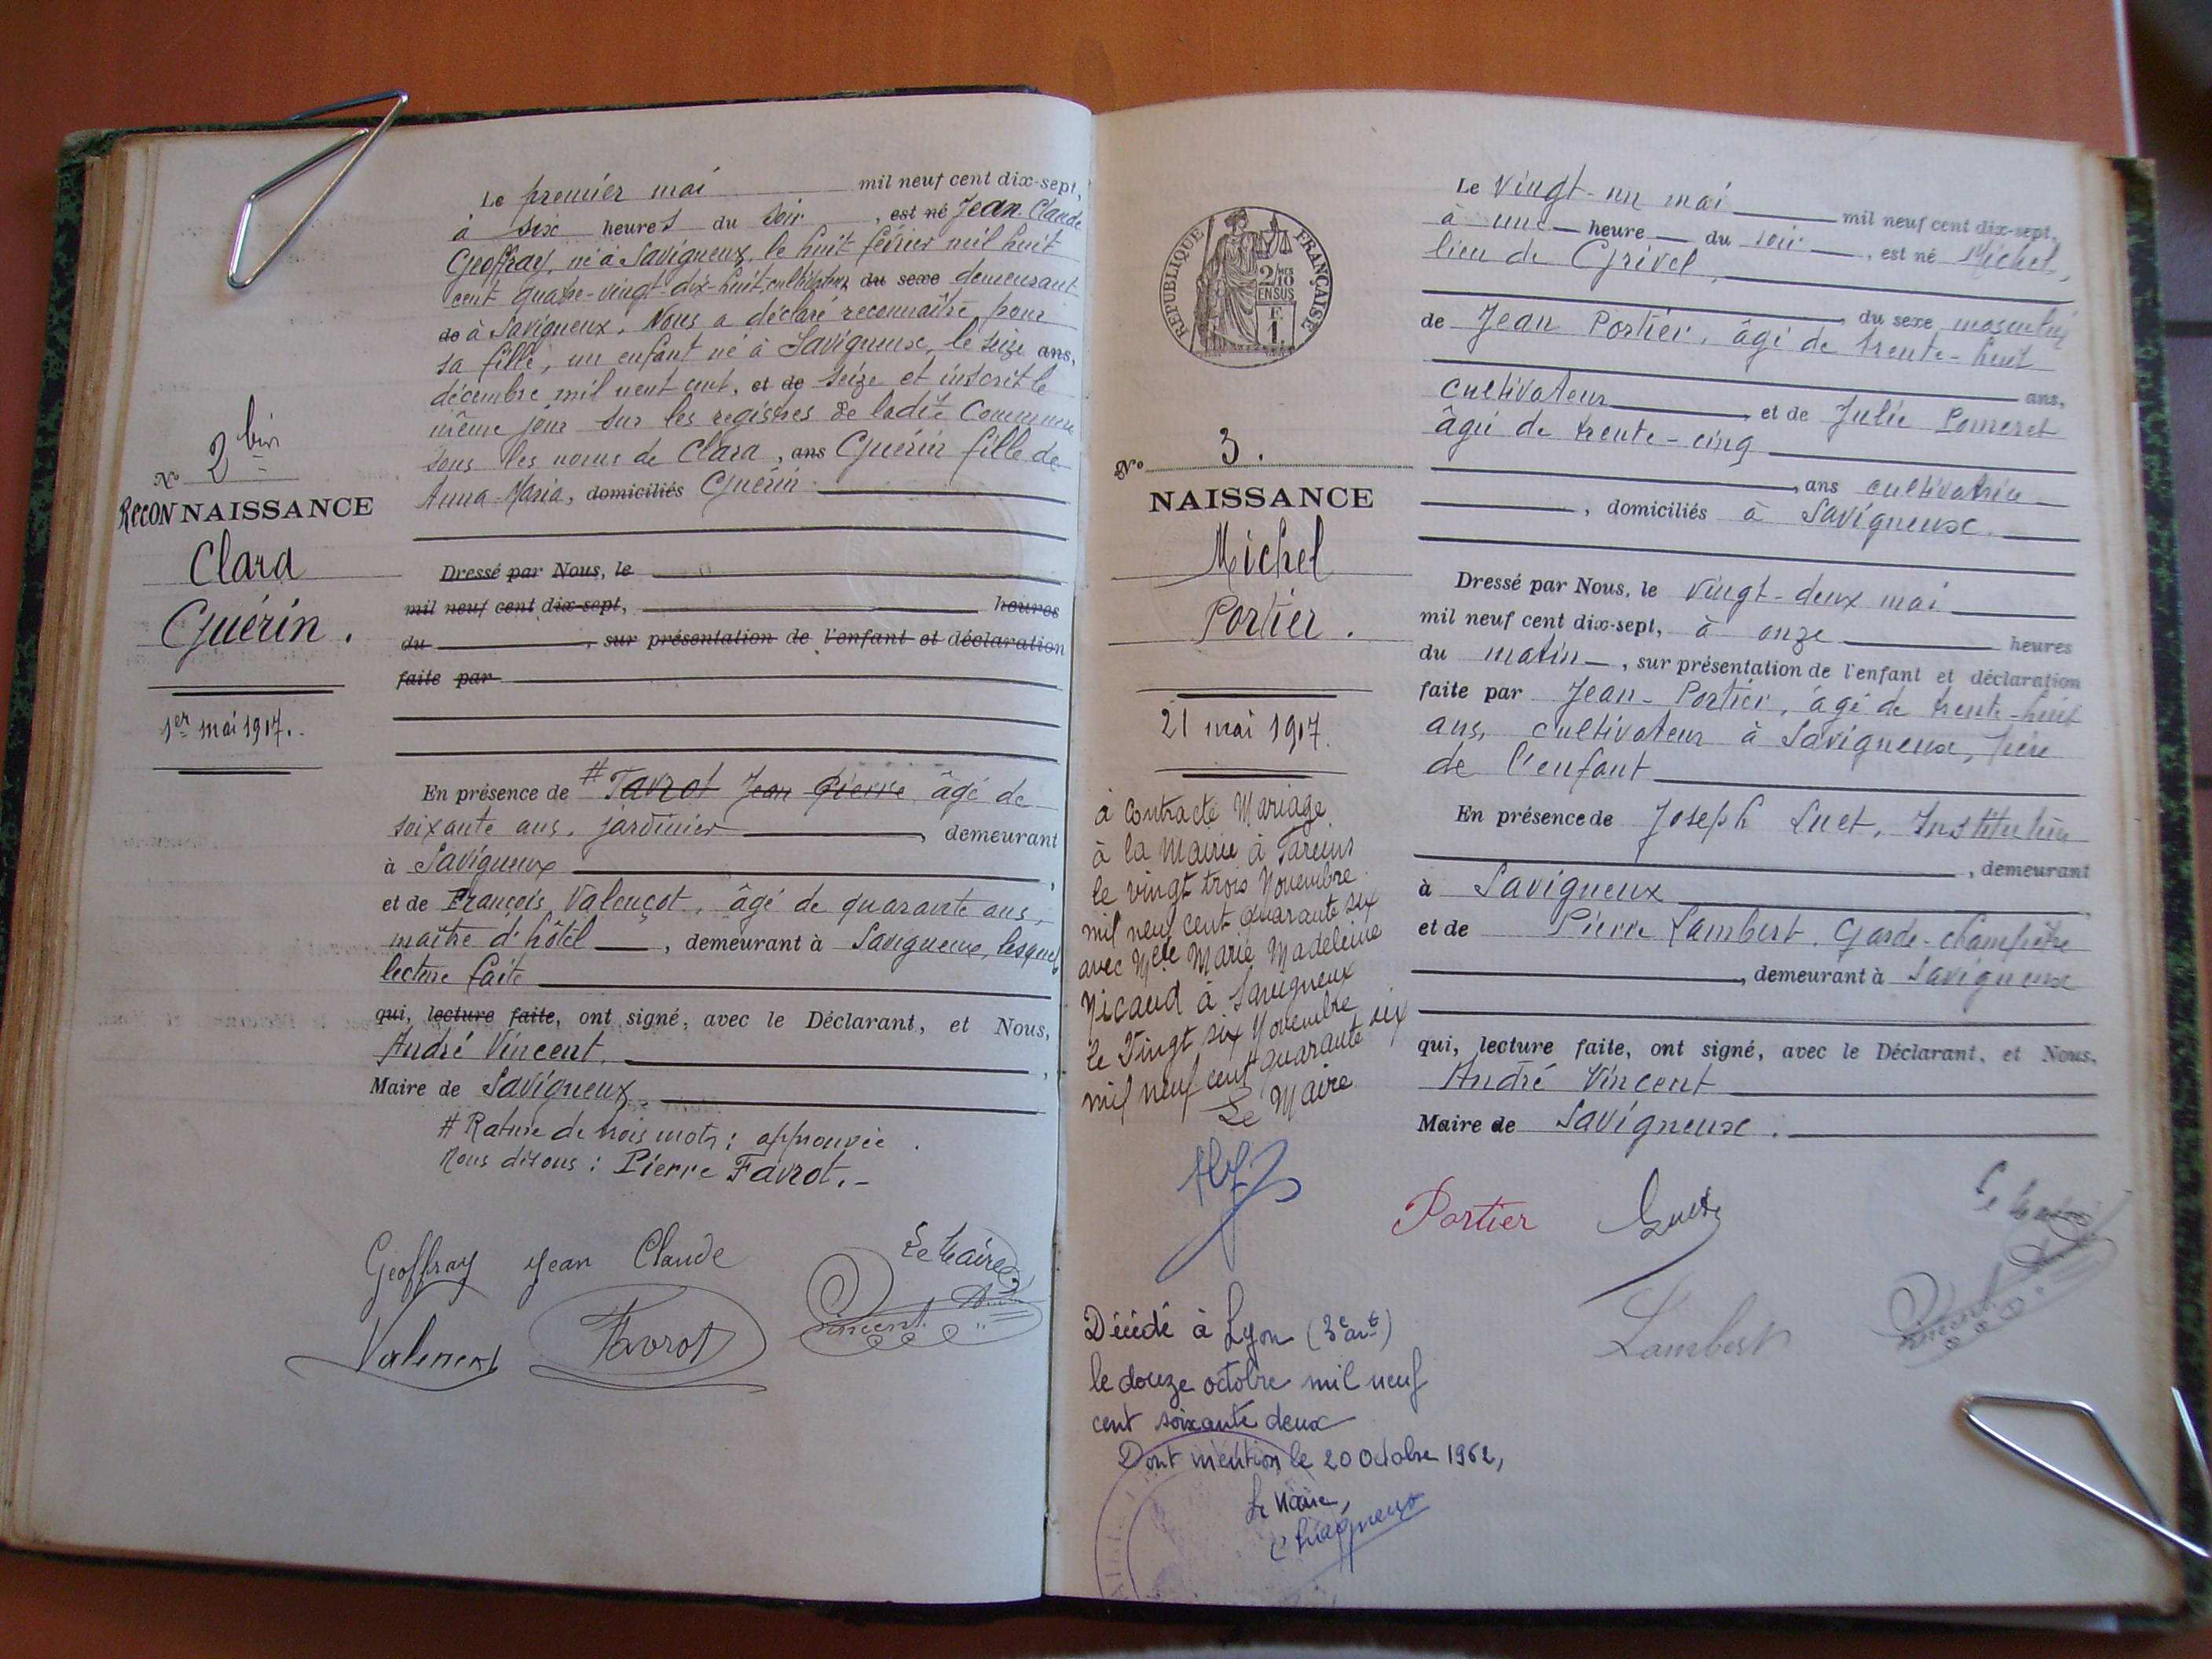 N° 2 bis
RECONNAISSANCE
Clara
Guérin.
1er mai 1917.
Le premier mai mil neuf cent dix-sept,
à six heures du soir, est né Jean Claude
Geoffray, né à Savigneux, le huit février mil huit
cent quatre-vingt-dix-huit, cultivateur, du sexe demeurant
de à Savigneux. Nous a déclaré reconnaître pour
sa fille, un enfant né à Savigneux, le seize ans,
décembre mil neuf cent, et de seize et inscrit le
même jour sur les registres de ladite Commune
sous les noms de Clara, ans Guérin fille de
Anna-Maria, domiciliés Guérin
Dressé par Nous, le
mil neuf cent dix-sept, heures
du , sur présentation de l'enfant et déclaration
faite par
En présence de # Favrot Jean Pierre, âgé de
soixante ans, jardinier, demeurant
à Savigneux,
et de François Valençot, âgé de quarante ans,
maître d'hôtel, demeurant à Savigneux, lesquels
lecture faite
qui, lecture faite, ont signé, avec le Déclarant, et Nous,
André Vincent,
Maire de Savigneux
# Rature de trois mots : approuvée.
Nous disons : Pierre Favrot.-
Geoffray Jean Claude
Le Maire
Vincent
Favrot
RÉPUBLIQUE FRANÇAISE
2/10 MES
EN SUS
F.
1.
N° 3.
NAISSANCE
Michel
Portier.
21 mai 1917.
à contracté Mariage
à la Mairie à Pareins
le vingt trois Novembre
mil neuf cent quarante six
avec Melle Marie Madeleine
Nicaud à Savigneux
le Vingt six Novembre
mil neuf cent quarante six
Le Maire
Décédé à Lyon (3e art)
le douze octobre mil neuf
cent soixante deux
Dont mention le 20 Octobre 1962,
Le Maire,
Le vingt-un mai mil neuf cent dix-sept,
à une heure du soir, est né Michel,
lieu de Grivel,
du sexe masculin
de Jean Portier, âgé de trente-huit
ans,
cultivateur et de Julie Pomeret
âgée de trente-cinq
ans cultivatrice
, domiciliés à Savigneux.
Dressé par Nous, le vingt-deux mai
mil neuf cent dix-sept, à onze heures
du matin, sur présentation de l'enfant et déclaration
faite par Jean-Portier, âgé de trente-huit
ans, cultivateur à Savigneux, père
de l'enfant
En présence de Joseph Guet, Instituteur
, demeurant
à Savigneux,
et de Pierre Lambert, Garde-champêtre
, demeurant à Savigneux
qui, lecture faite, ont signé, avec le Déclarant, et Nous,
André Vincent
Maire de Savigneux.
Portier
Guet
Le Maire
Lambert
Vincent